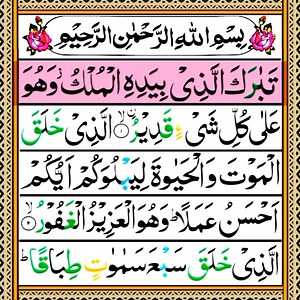 بِسْمِ اللهِ الرَّحْمٰنِ الرَّحِيْمِ
تَبٰرَكَ الَّذِيْ بِيَدِهِ الْمُلْكُ ز وَهُوَ
عَلٰى كُلِّ شَيْءٍ قَدِيْرُ ۙ﴿۱﴾ الَّذِيْ خَلَقَ
الْمَوْتَ وَالْحَيٰوةَ لِيَبْلُوَكُمْ اَيُّكُمْ
اَحْسَنُ عَمَلًا ؕ وَهُوَ الْعَزِيْزُ الْغَفُوْرُ ۙ﴿۲﴾
الَّذِيْ خَلَقَ سَبْعَ سَمٰوٰتٍ طِبَاقًا ؕ